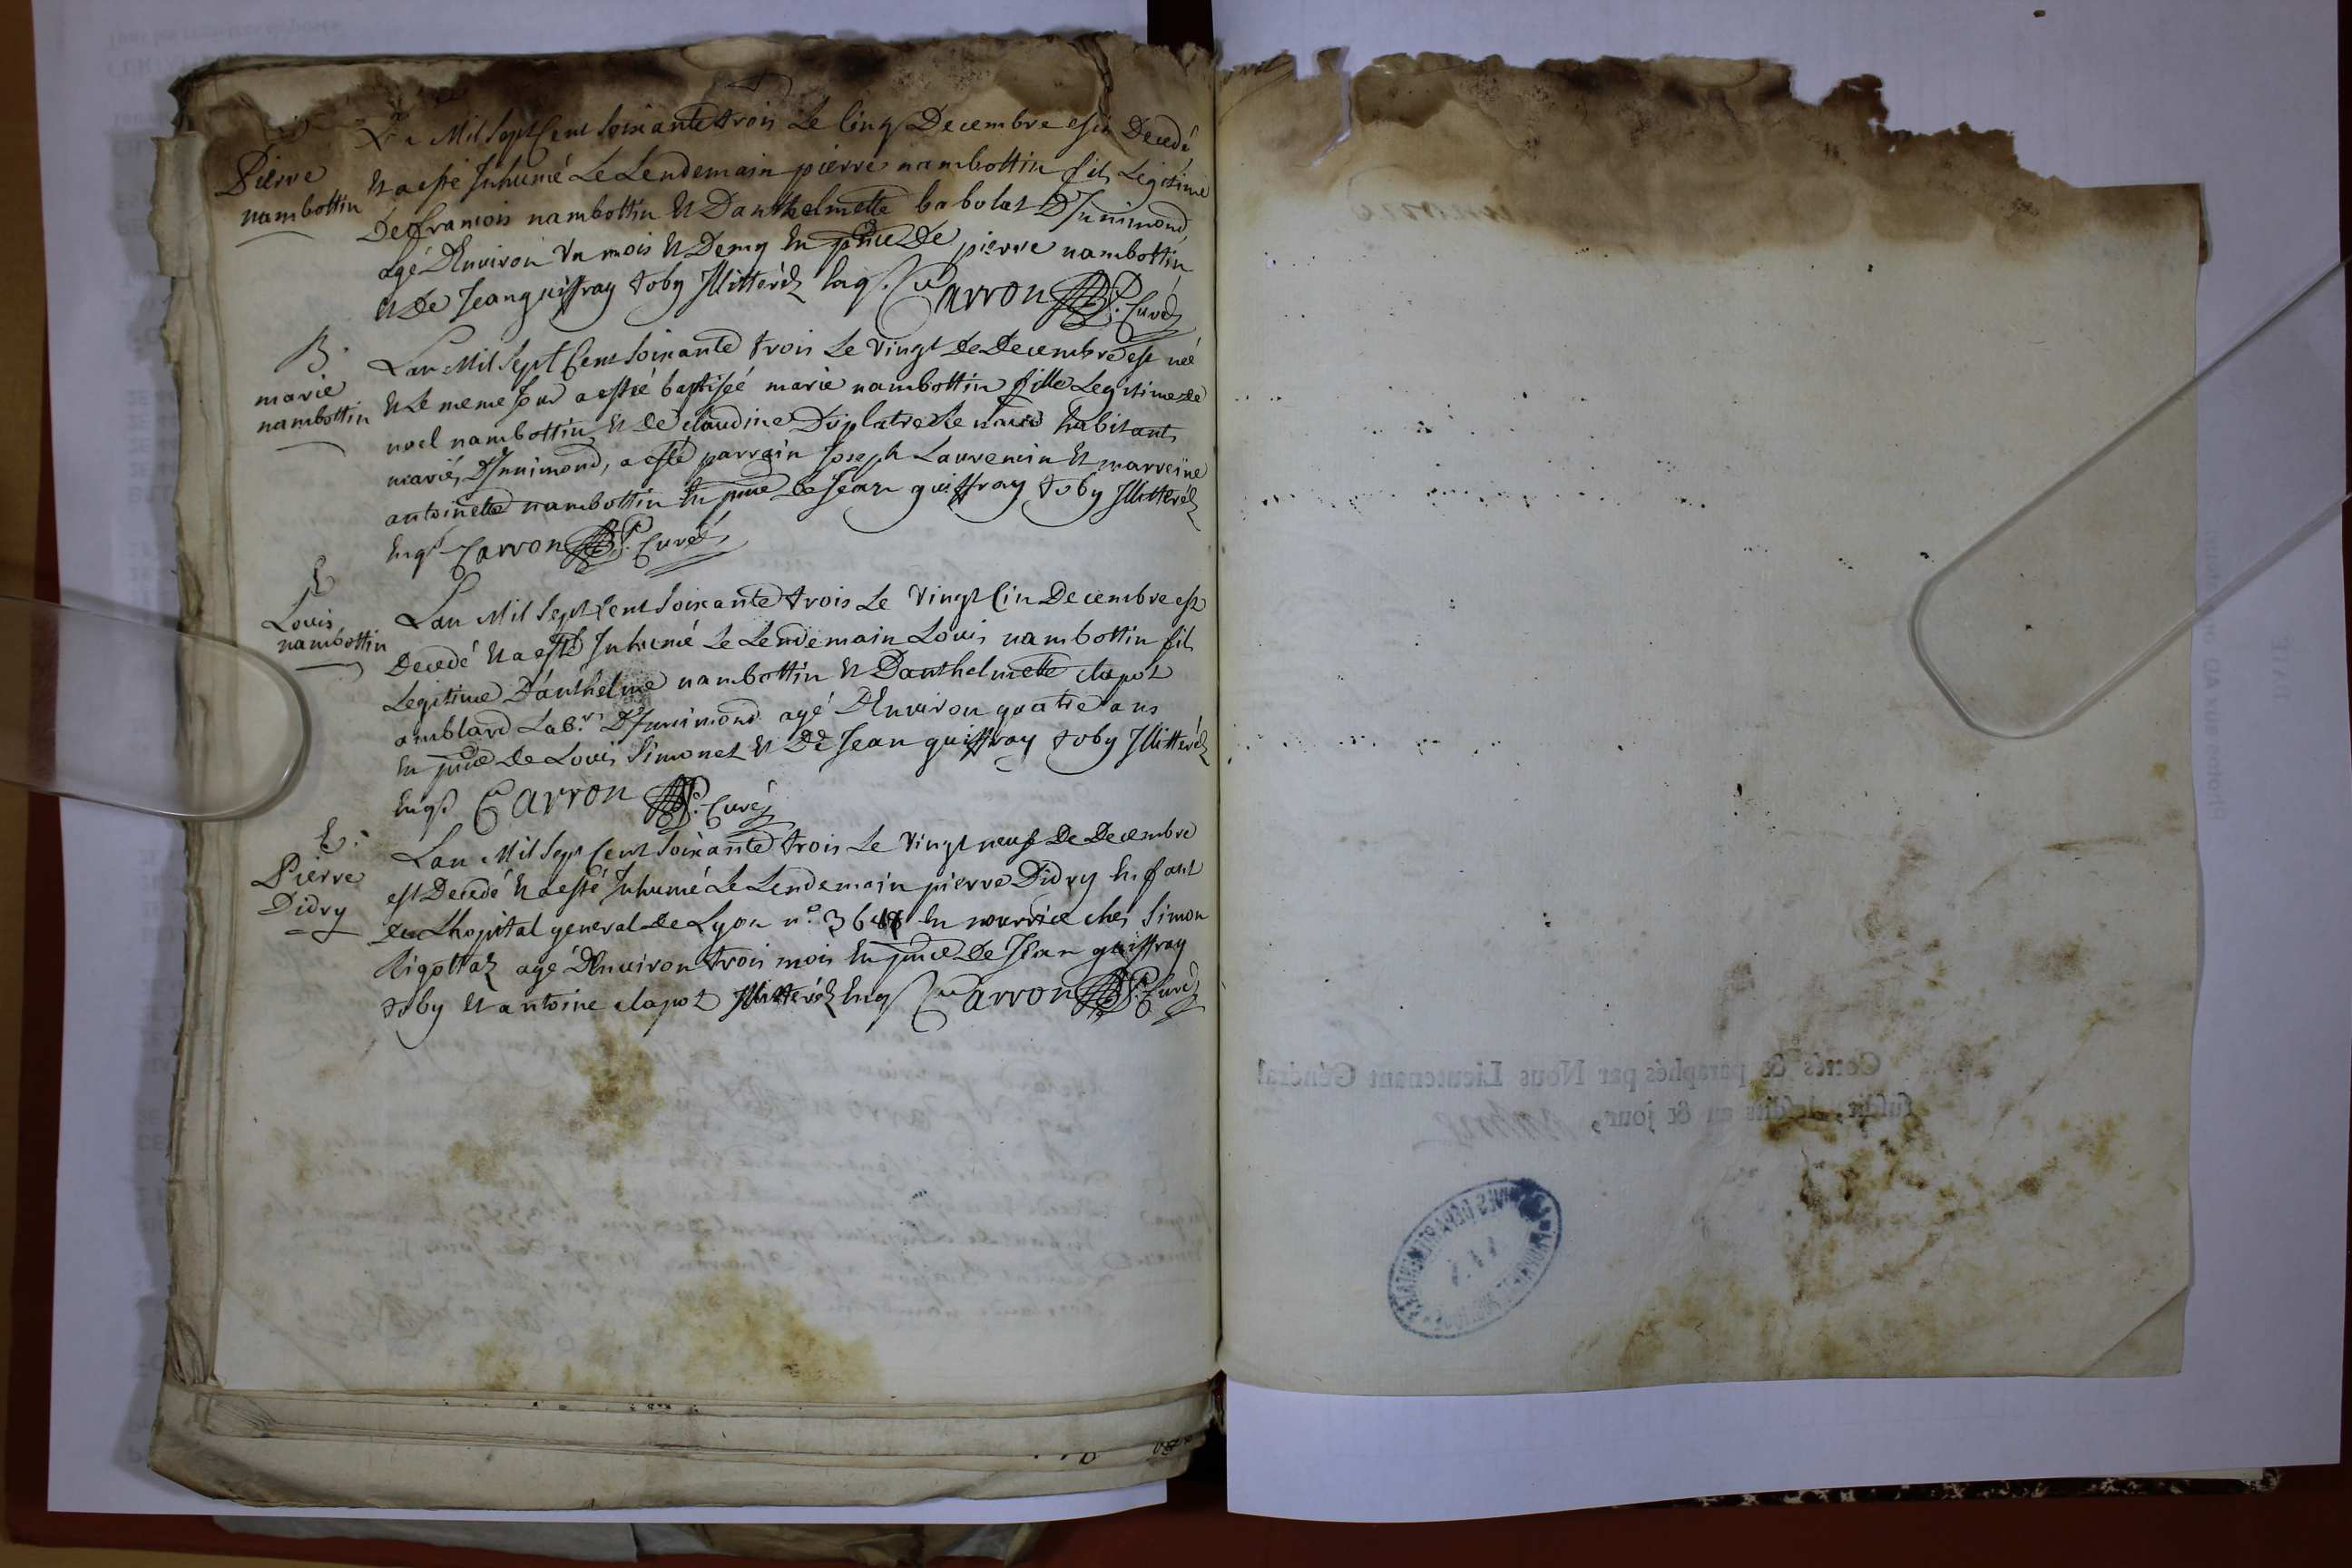 Mil Sept Cent Soixante trois Le Cinq Decembre est Decedé
Pierre
nambottin
Et a esté Inhumé Le Lendemain pierre nambottin fils Legitime
De francois nambottin Et Danthelmette babolat D'Innimond,
agé D'Environ Un mois Et Demy En pnce De pierre nambottin
Et De Jean guiffray toby Illitteréz Enqs. Carron Curé
B.
marie
nambottin
Lan Mil Sept Cent Soixante trois Le Vingt De Decembre est neé
Et Le meme Jour a estté baptiseé marie nambottin fille Legitime de
noel nambottin Et De Claudine Duplatre habitants
mariés D'Innimond, a esté parrain Joseph Laurencin Et marreine
antoinette nambottin En pnce De Jean guiffray toby Illitteréz
Enqs Carron P. Curé
E
Louis
nambottin
Lan Mil Sept Cent Soixante trois Le Vingt Cin Decembre est
Decedé Et a esté Inhumé Le Lendemain Louis nambottin fils
Legitime D'anthelme nambottin Et Danthelmette clapot
amblard Labr. D'Innimond agé D'Environ quatre ans
En pnce De Louis Simonet Et De Jean guiffray toby Illitteréz
Enqs Carron P. Curé
E.
Pierre
Didry
Lan Mil Sept Cent Soixante trois Le Vingt neuf De Decembre
est Decedé Et a esté Inhumé Le Lendemain pierre Didry Enfant
De Lhopital general De Lyon n.º En nourrice ches Simon
Rigottaz agé D'Environ trois mois En pnce De Jean guiffray
toby Et antoine clapot Illitteréz Enqs Carron P. Curé
Cottés & paraphés par Nous Lieutenant Général
susdit, lesdits an & jour,